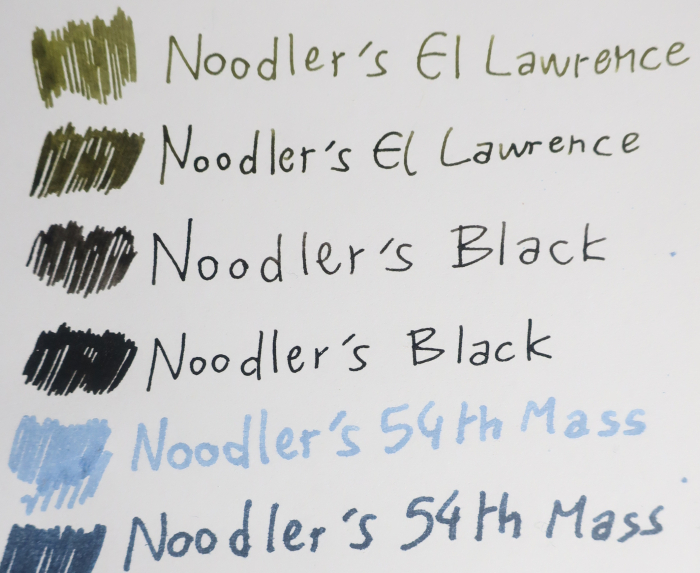 Noodler's El Lawrence
Noodler's El Lawrence
Noodler's Black
Noodler's Black
Noodler's 54th Mass
Noodler's 54th Mass